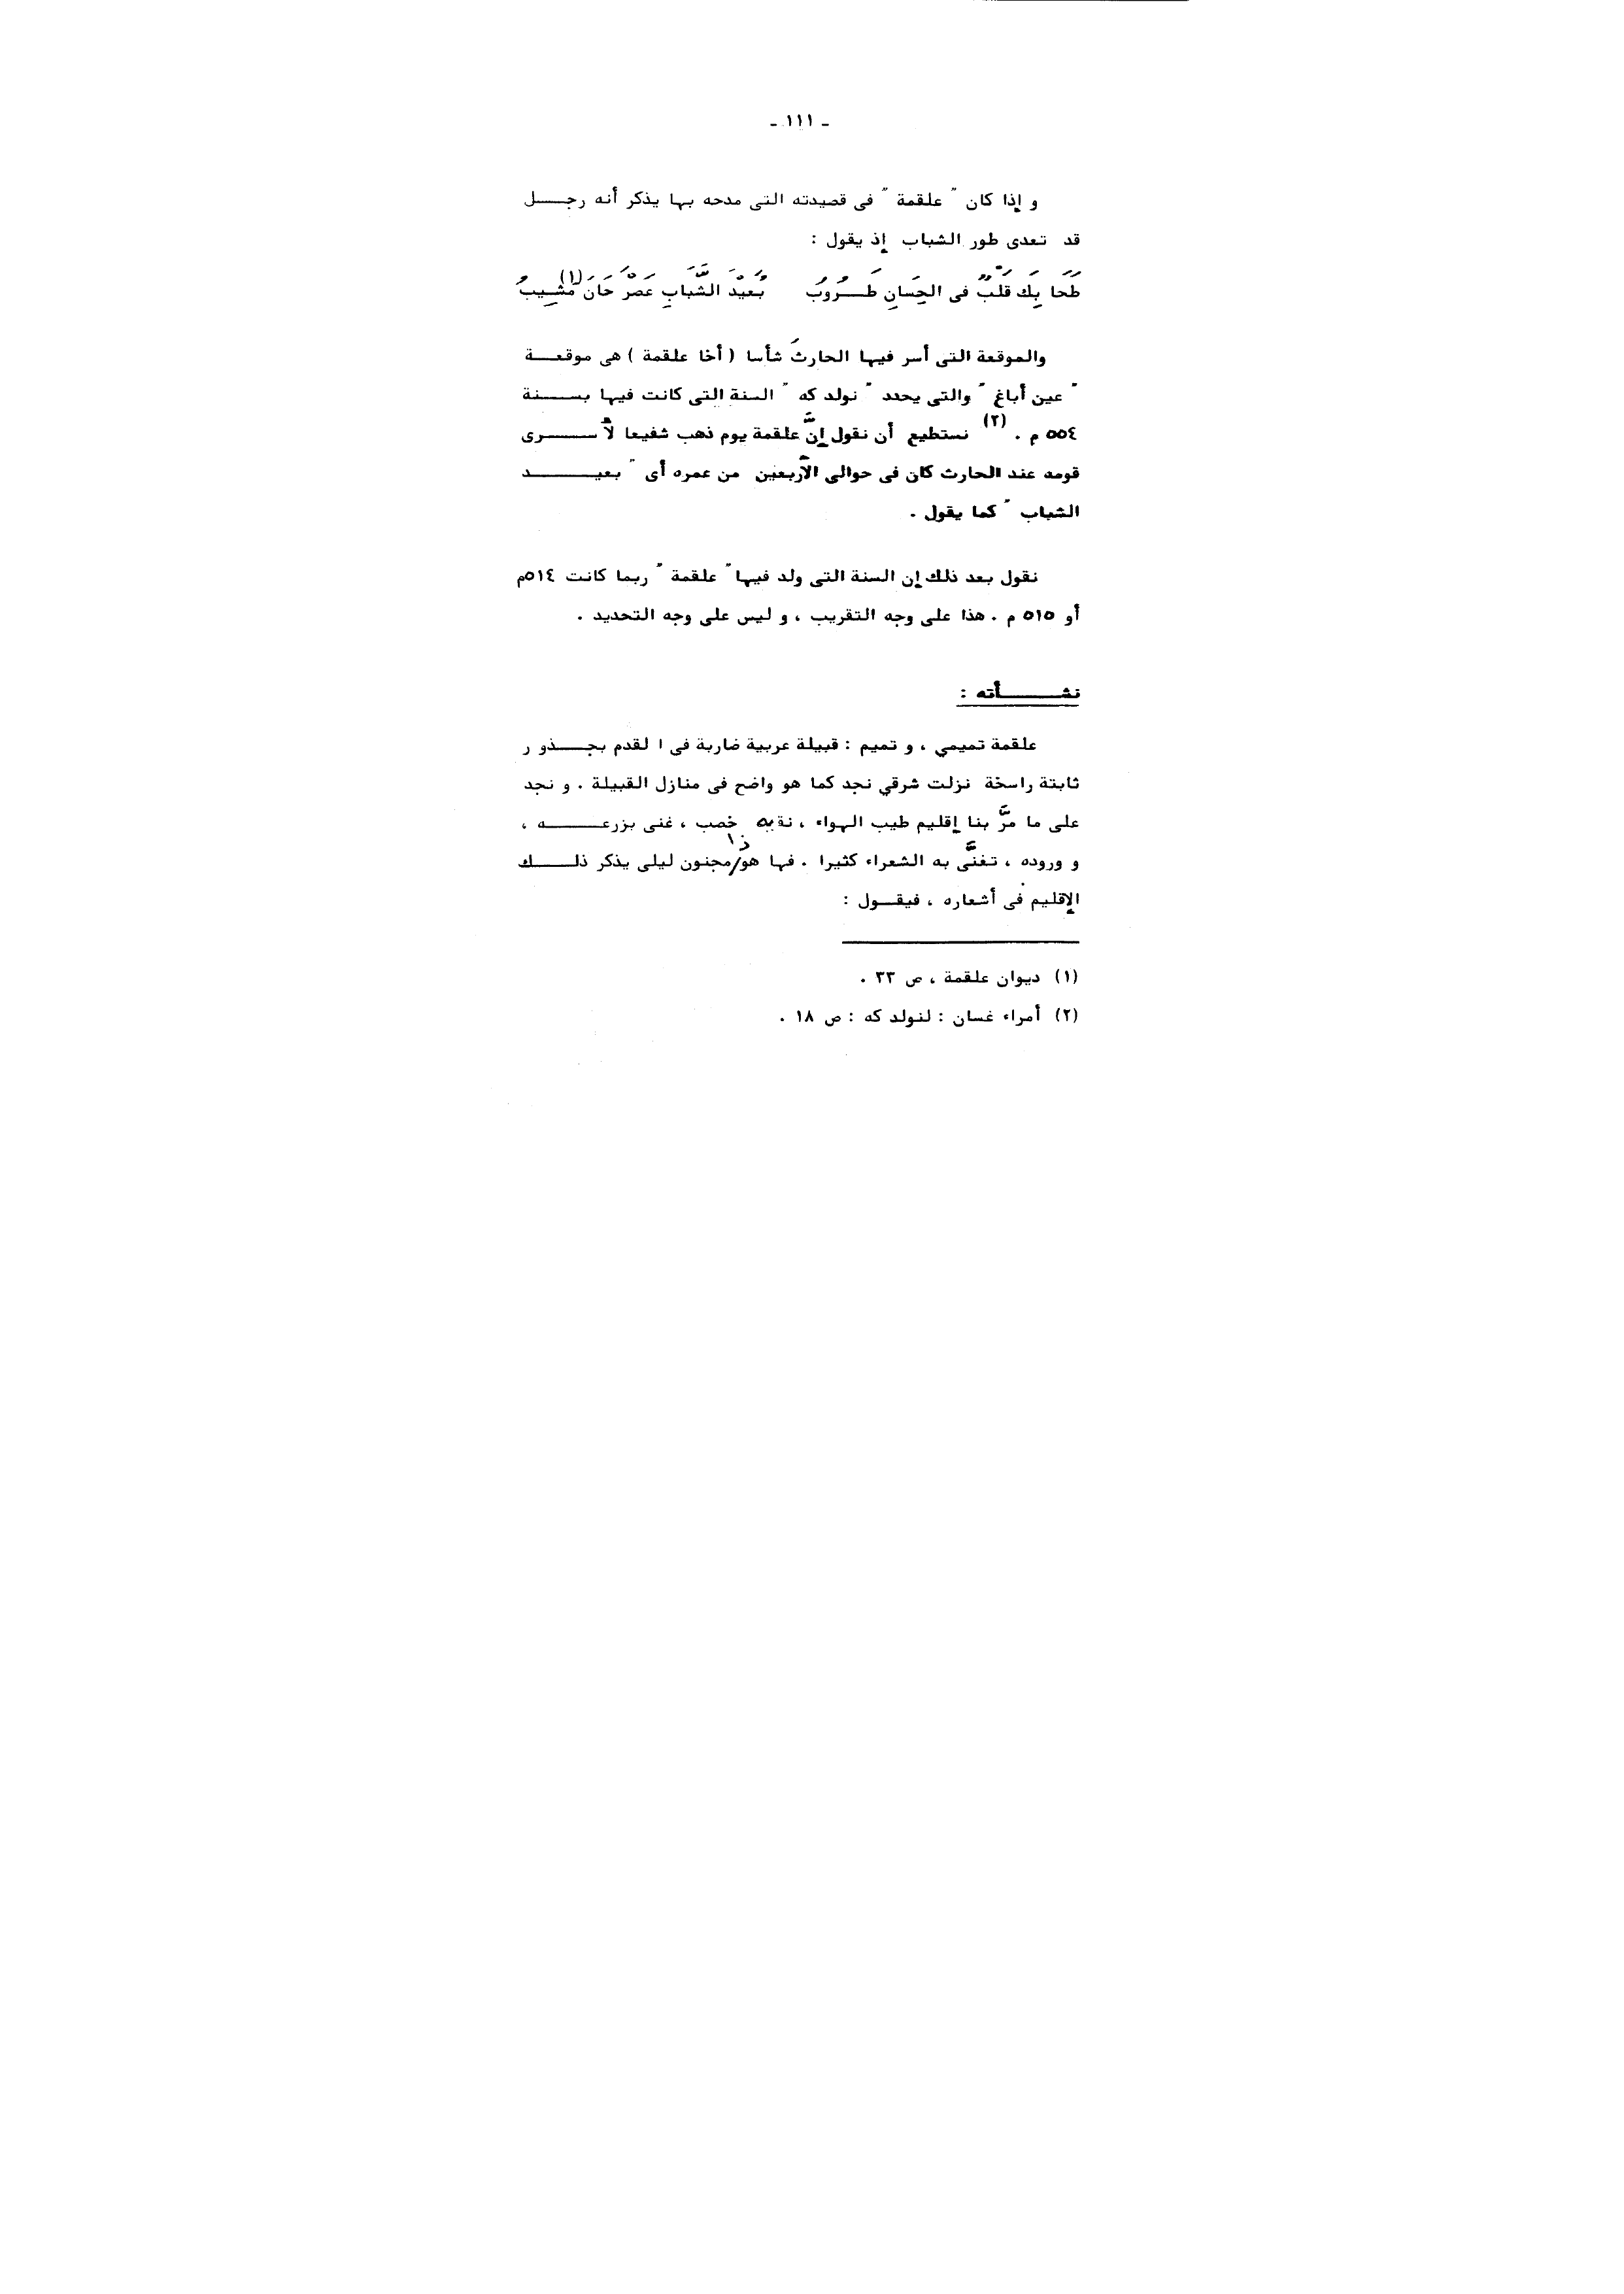 - ١١١ -
و إذا كان " علقمة " فى قصيدته التى مدحه بها يذكر أنه رجـــل
قد تعدى طور الشباب إذ يقول :
طَحَا بِكَ قَلْبٌ فى الحِسَانِ طَـــرُوبُ بُعَيْدَ الشَّبابِ عَصْرَ حَانَ مَشِيبُ (١)
والموقعة التى أسر فيها الحارثَ شأسا ( أخا علقمة ) هى موقعـــة
" عين أباغ " والتى يحدد " نولد كه " السنة التى كانت فيها بســـنة
٥٥٤ م . (٢) نستطيع أن نقول إنَّ علقمة يوم ذهب شفيعا لأســـرى
قومه عند الحارث كان فى حوالى الأربعين من عمره أى " بعيـــد
الشباب " كما يقول .
نقول بعد ذلك إن السنة التى ولد فيها " علقمة " ربما كانت ٥١٤م
أو ٥١٥ م . هذا على وجه التقريب ، و ليس على وجه التحديد .
نشـــأته :
علقمة تميمي ، و تميم : قبيلة عربية ضاربة فى ا لقدم بجـــذو ر
ثابتة راسخة نزلت شرقي نجد كما هو واضح فى منازل القبيلة . و نجد
على ما مرَّ بنا إقليم طيب الهواء ، نقيه خصب ، غنى بزرعـــه ،
و وروده ، تغنَّى به الشعراء كثيرا . فها هو ذا مجنون ليلى يذكر ذلـــك
الإقليم فى أشعاره ، فيقـــول :
(١) ديوان علقمة ، ص ٣٣ .
(٢) أمراء غسان : لنولد كه : ص ١٨ .